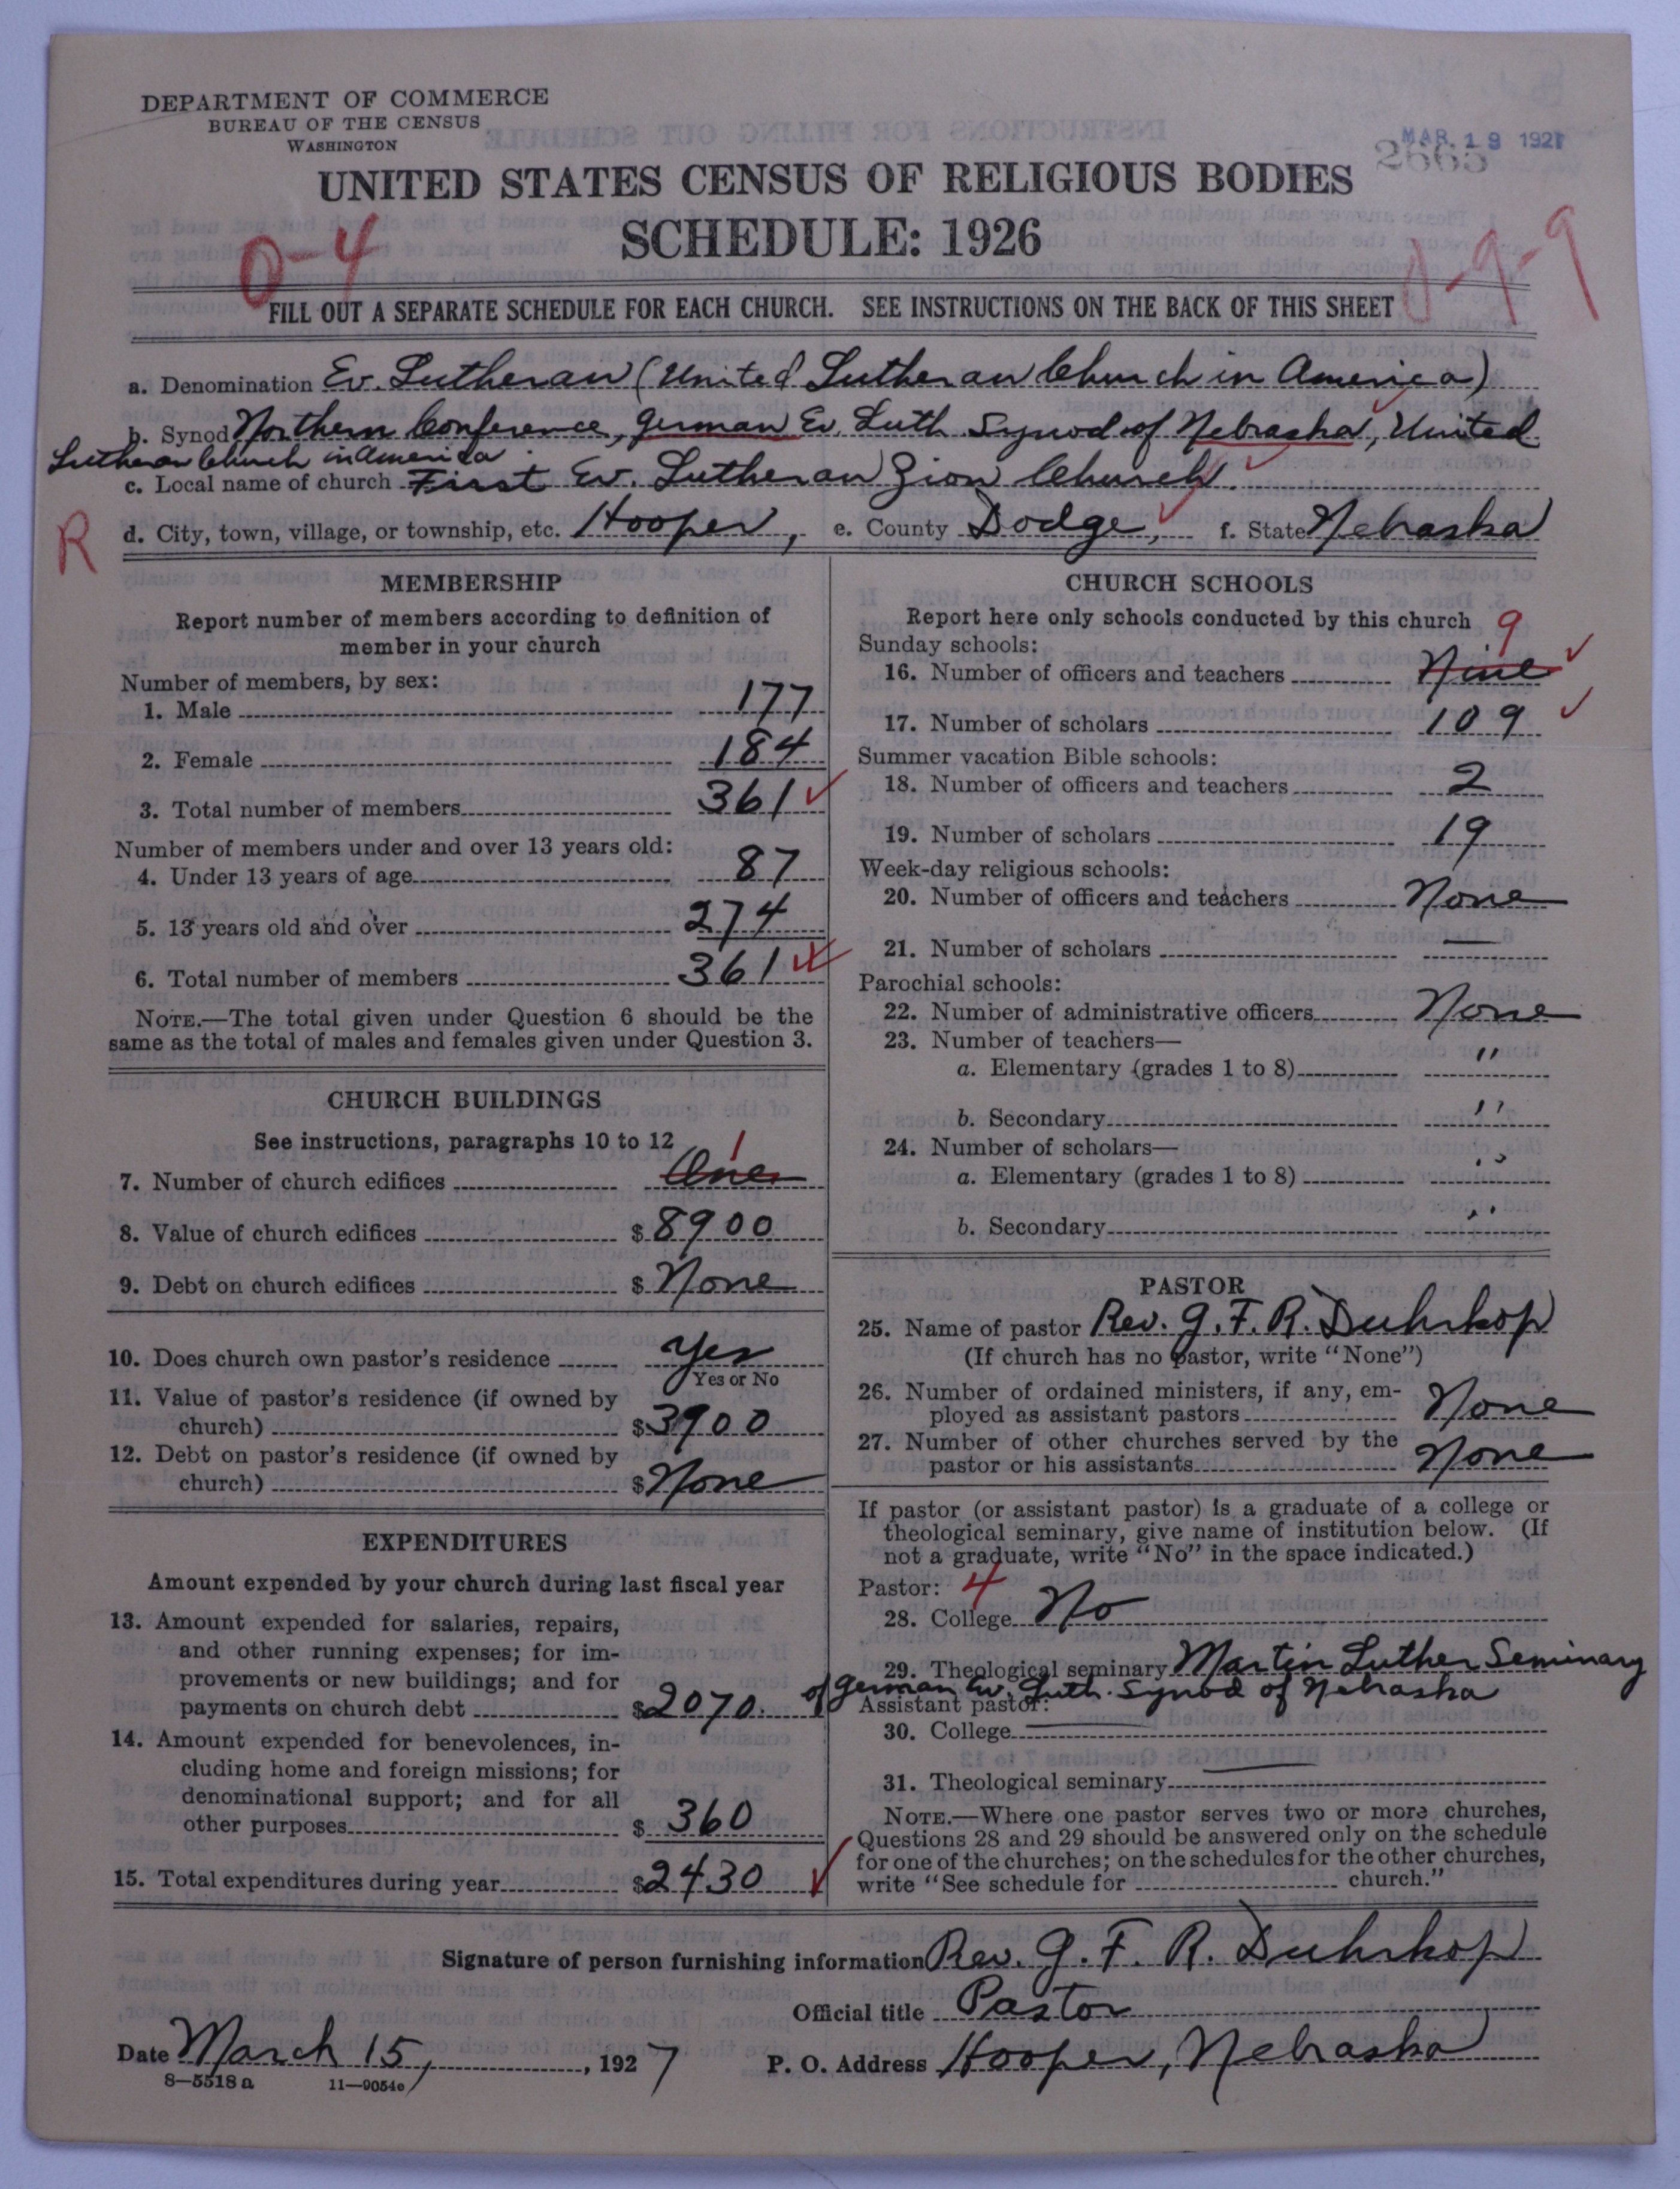 DEPARTMENT OF COMMERCE
BUREAU OF THE CENSUS
WASHINGTON
MAR. 19 1927
2665
UNITED STATES CENSUS OF RELIGIOUS BODIES
SCHEDULE: 1926
0-4
9-9
FILL OUT A SEPARATE SCHEDULE FOR EACH CHURCH. SEE INSTRUCTIONS ON THE BACK OF THIS SHEET
a. Denomination Ev. Lutheran (United Lutheran Church in America)
b. Synod Northern Conference, German Ev. Luth. Synod of Nebraska, United
Lutheran Church in America.
c. Local name of church First Ev. Lutheran Zion Church.
R
d. City, town, village, or township, etc. Hooper, e. County Dodge, f. State Nebraska
MEMBERSHIP
Report number of members according to definition of
member in your church
Number of members, by sex:
1. Male 177
2. Female 184
3. Total number of members 361
Number of members under and over 13 years old:
4. Under 13 years of age 87
5. 13 years old and over 274
6. Total number of members 361
NOTE.—The total given under Question 6 should be the
same as the total of males and females given under Question 3.
CHURCH BUILDINGS
See instructions, paragraphs 10 to 12 1
7. Number of church edifices One
8. Value of church edifices $8900
9. Debt on church edifices $ None
10. Does church own pastor's residence Yes
Yes or No
11. Value of pastor's residence (if owned by
church) $3900
12. Debt on pastor's residence (if owned by
church) $ None
EXPENDITURES
Amount expended by your church during last fiscal year
13. Amount expended for salaries, repairs,
and other running expenses; for im-
provements or new buildings; and for
payments on church debt $2070.
14. Amount expended for benevolences, in-
cluding home and foreign missions; for
denominational support; and for all
other purposes $ 360
15. Total expenditures during year $2430
CHURCH SCHOOLS
Report here only schools conducted by this church 9
Sunday schools:
16. Number of officers and teachers Nine
17. Number of scholars 109
Summer vacation Bible schools:
18. Number of officers and teachers 2
19. Number of scholars 19
Week-day religious schools:
20. Number of officers and teachers None
21. Number of scholars —
Parochial schools:
22. Number of administrative officers None
23. Number of teachers—
a. Elementary (grades 1 to 8) "
b. Secondary "
24. Number of scholars—
a. Elementary (grades 1 to 8) "
b. Secondary "
PASTOR
25. Name of pastor Rev. G. F. R. Duhrkop
(If church has no pastor, write "None")
26. Number of ordained ministers, if any, em-
ployed as assistant pastors None
27. Number of other churches served by the
pastor or his assistants None
If pastor (or assistant pastor) is a graduate of a college or
theological seminary, give name of institution below. (If
not a graduate, write "No" in the space indicated.)
Pastor: 4
28. College No
29. Theological seminary Martin Luther Seminary
of German Ev. Luth. Synod of Nebraska
Assistant pastor:
30. College —
31. Theological seminary —
NOTE.—Where one pastor serves two or more churches,
Questions 28 and 29 should be answered only on the schedule
for one of the churches; on the schedules for the other churches,
write "See schedule for church."
Signature of person furnishing information Rev. G. F. R. Duhrkop
Official title Pastor
Date March 15, 1927 P. O. Address Hooper, Nebraska
8—5518a 11—9054e